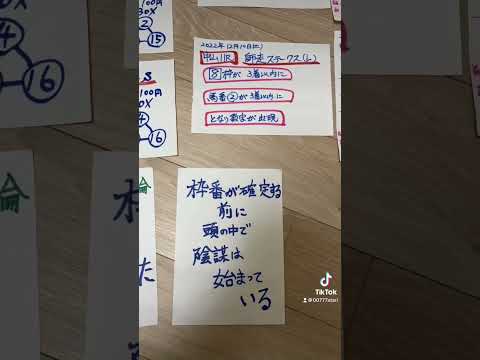 100円
30X
2
15
4
16
S
100円
0X
4
16
論
た
2022年12月10日(土)
中山11R 師走ステークス(L)
8枠が3着以内に
馬番②が3着以内に
となり数字が出現
枠番が確定する
前に
頭の中で
陰謀は
始まって
いる
TikTok